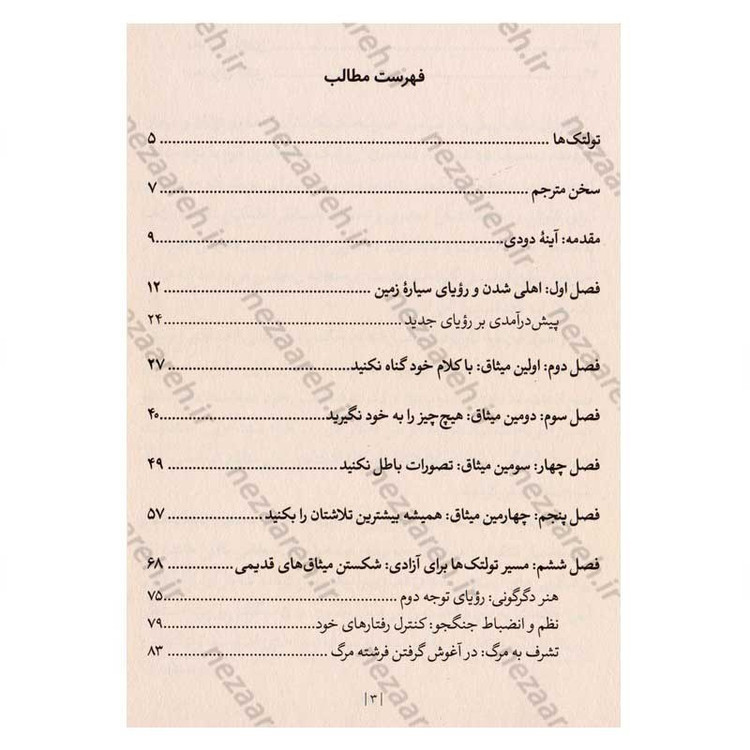 فهرست مطالب
تولتک‌ها ..... ۵
سخن مترجم ..... ۷
مقدمه: آینهٔ دودی ..... ۹
فصل اول: اهلی شدن و رؤیای سیارهٔ زمین ..... ۱۲
پیش‌درآمدی بر رؤیای جدید ..... ۲۴
فصل دوم: اولین میثاق: با کلام خود گناه نکنید ..... ۲۷
فصل سوم: دومین میثاق: هیچ‌چیز را به خود نگیرید ..... ۴۰
فصل چهار: سومین میثاق: تصورات باطل نکنید ..... ۴۹
فصل پنجم: چهارمین میثاق: همیشه بیشترین تلاشتان را بکنید ..... ۵۷
فصل ششم: مسیر تولتک‌ها برای آزادی: شکستن میثاق‌های قدیمی ..... ۶۸
هنر دگرگونی: رؤیای توجه دوم ..... ۷۵
نظم و انضباط جنگجو: کنترل رفتارهای خود ..... ۷۹
تشرف به مرگ: در آغوش گرفتن فرشته مرگ ..... ۸۳
| ۳ |
nezaareh.ir